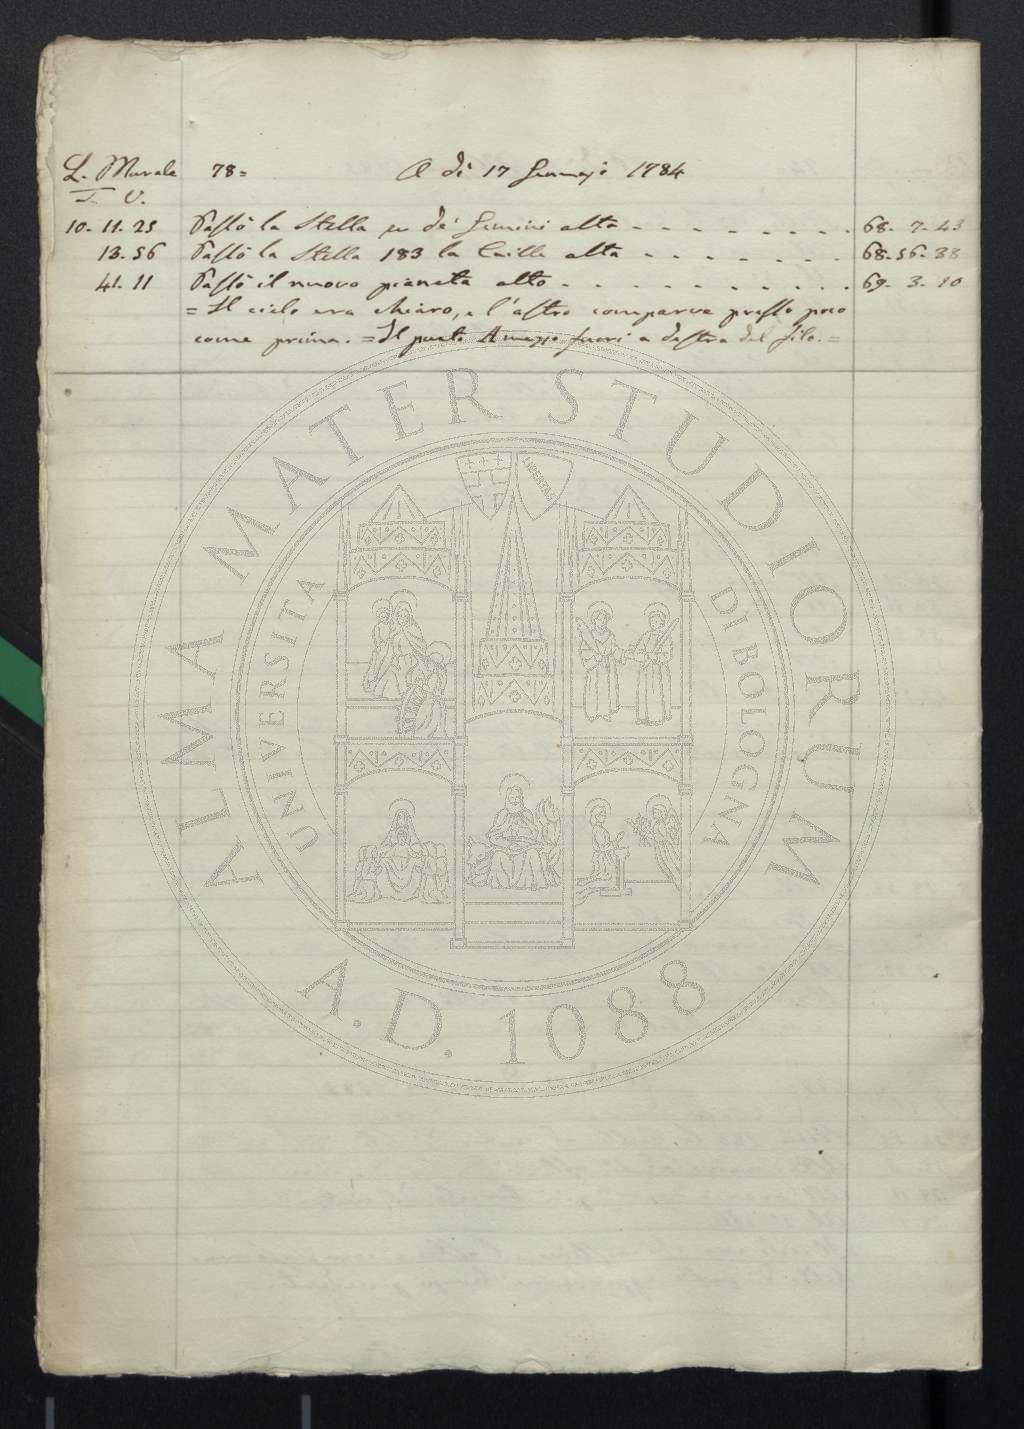 L. Murale 78= A dì 17 Gennajo 1784
T. V.
10. 11. 25 Passò la Stella μ de' Gemini alta 68. 7. 43
13. 56 Passò la Stella 183 la Caille alta 68. 56. 38
41. 11 Passò il nuovo pianeta alto 69. 3. 10
= Il cielo era chiaro, e l'astro comparve presso poco
come prima. = Il punto A mezzo fuori a destra del filo. =
ALMA MATER STUDIORUM
A.D. 1088
UNIVERSITA DI BOLOGNA
LIBERTAS